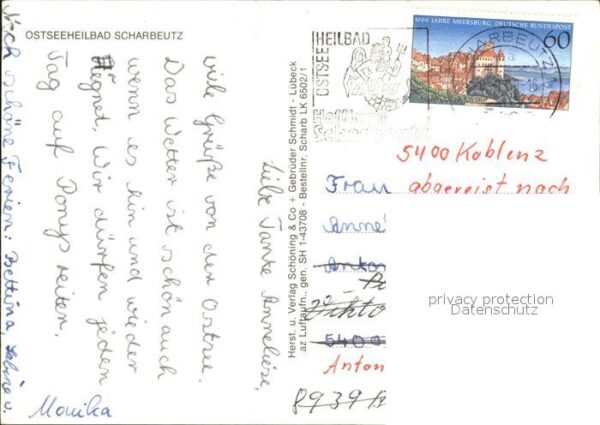 OSTSEEHEILBAD SCHARBEUTZ
Liebe Tante Anneliese,
viele Grüße von der Ostsee.
Das Wetter ist schön auch
wenn es hin und wieder
regnet. Wir dürfen jeden
Tag auf Ponys reiten.
Noch schöne Ferien: Bettina, Sabine u.
Monika
Herst. u. Verlag Schöning & Co + Gebrüder Schmidt - Lübeck
az Luftaufn., gen. SH 1-43708 - Bestellnr. Scharb LK 6502/1
HEILBAD
OSTSEE
1000 JAHRE MEERSBURG DEUTSCHE BUNDESPOST
60
5400 Koblenz
abgereist nach
Frau
Anne
5400
Anton
8939
privacy protection
Datenschutz